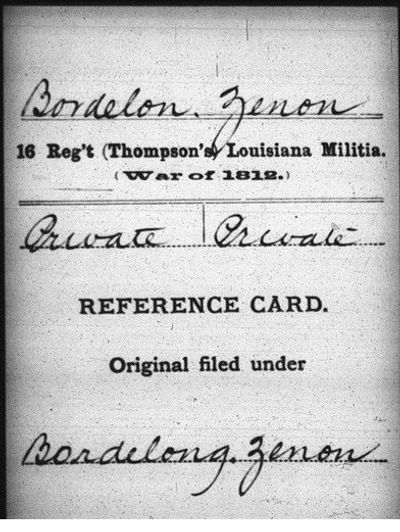 Bordelon. Zenon
16 Reg't (Thompson's) Louisiana Militia.
(War of 1812.)
Private | Private
REFERENCE CARD.
Original filed under
Bordelong. Zenon